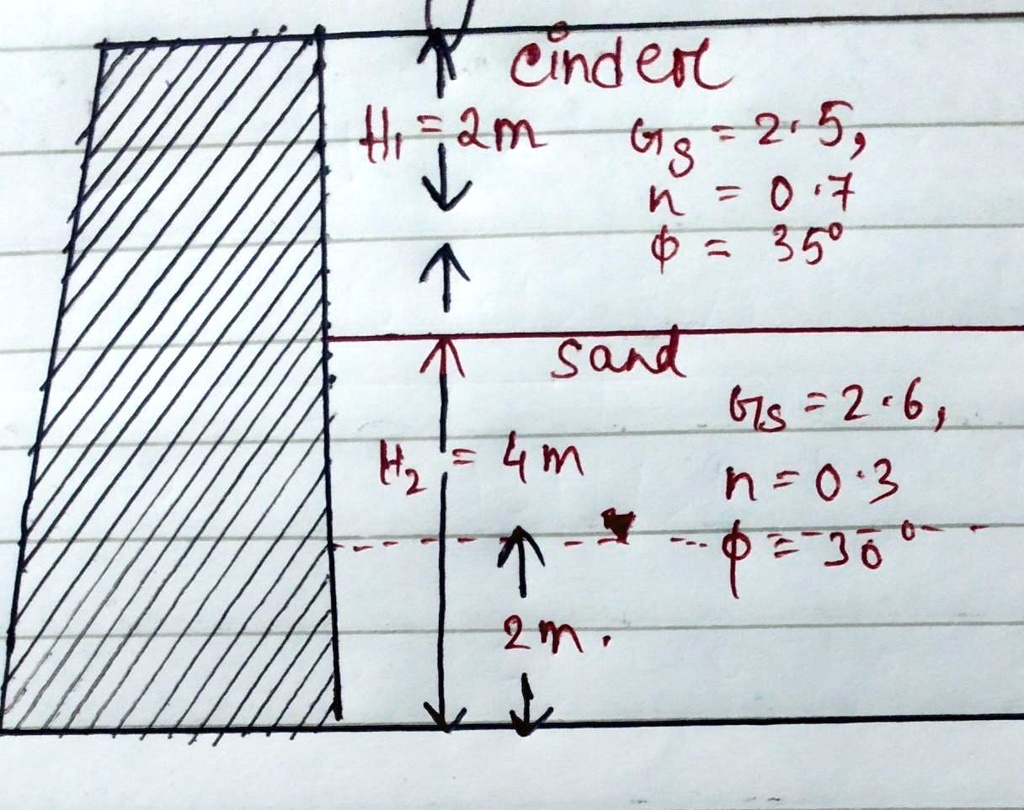 cinder
H₁ = 2m
Gs = 2.5,
n = 0.7
ϕ = 35°
Sand
Gs = 2.6,
H₂ = 4m
n = 0.3
ϕ = 30°
2m.